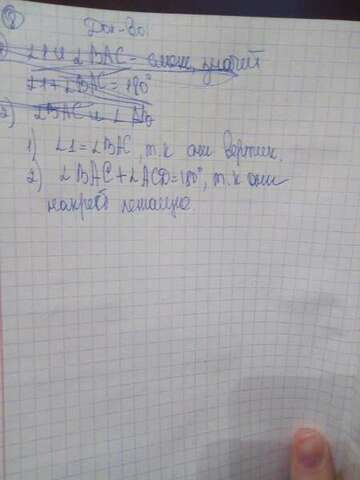 Док-во:
∠1 и ∠BAC = смеж, значит
∠1 + ∠BAC = 180°
2) ∠BAC и ∠
1) ∠1 = ∠BAC, т.к они вертик.
2) ∠BAC + ∠ACD = 180°, т.к они
накрест лежащие.